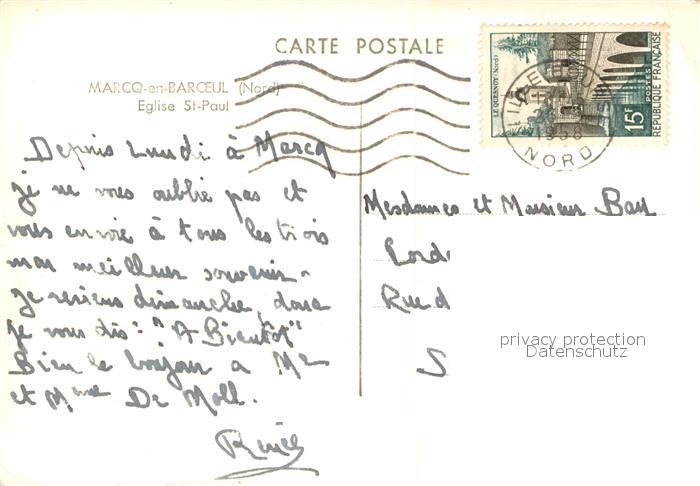 CARTE POSTALE
MARCQ-en-BARŒUL (Nord)
Eglise St-Paul
LE QUESNOY (Nord)
15F
POSTES
RÉPUBLIQUE FRANÇAISE
LILLE
1958
NORD
Depuis Lundi à Marcq
je ne vous oublie pas et
vous envoie à tous les trois
mon meilleur souvenir.
Je reviens dimanche, donc
je vous dis : "A Bientôt"
Bien le bonjour a Mr
et Mme De Moll.
Mesdames et Monsieur
Rue d
S
privacy protection
Datenschutz